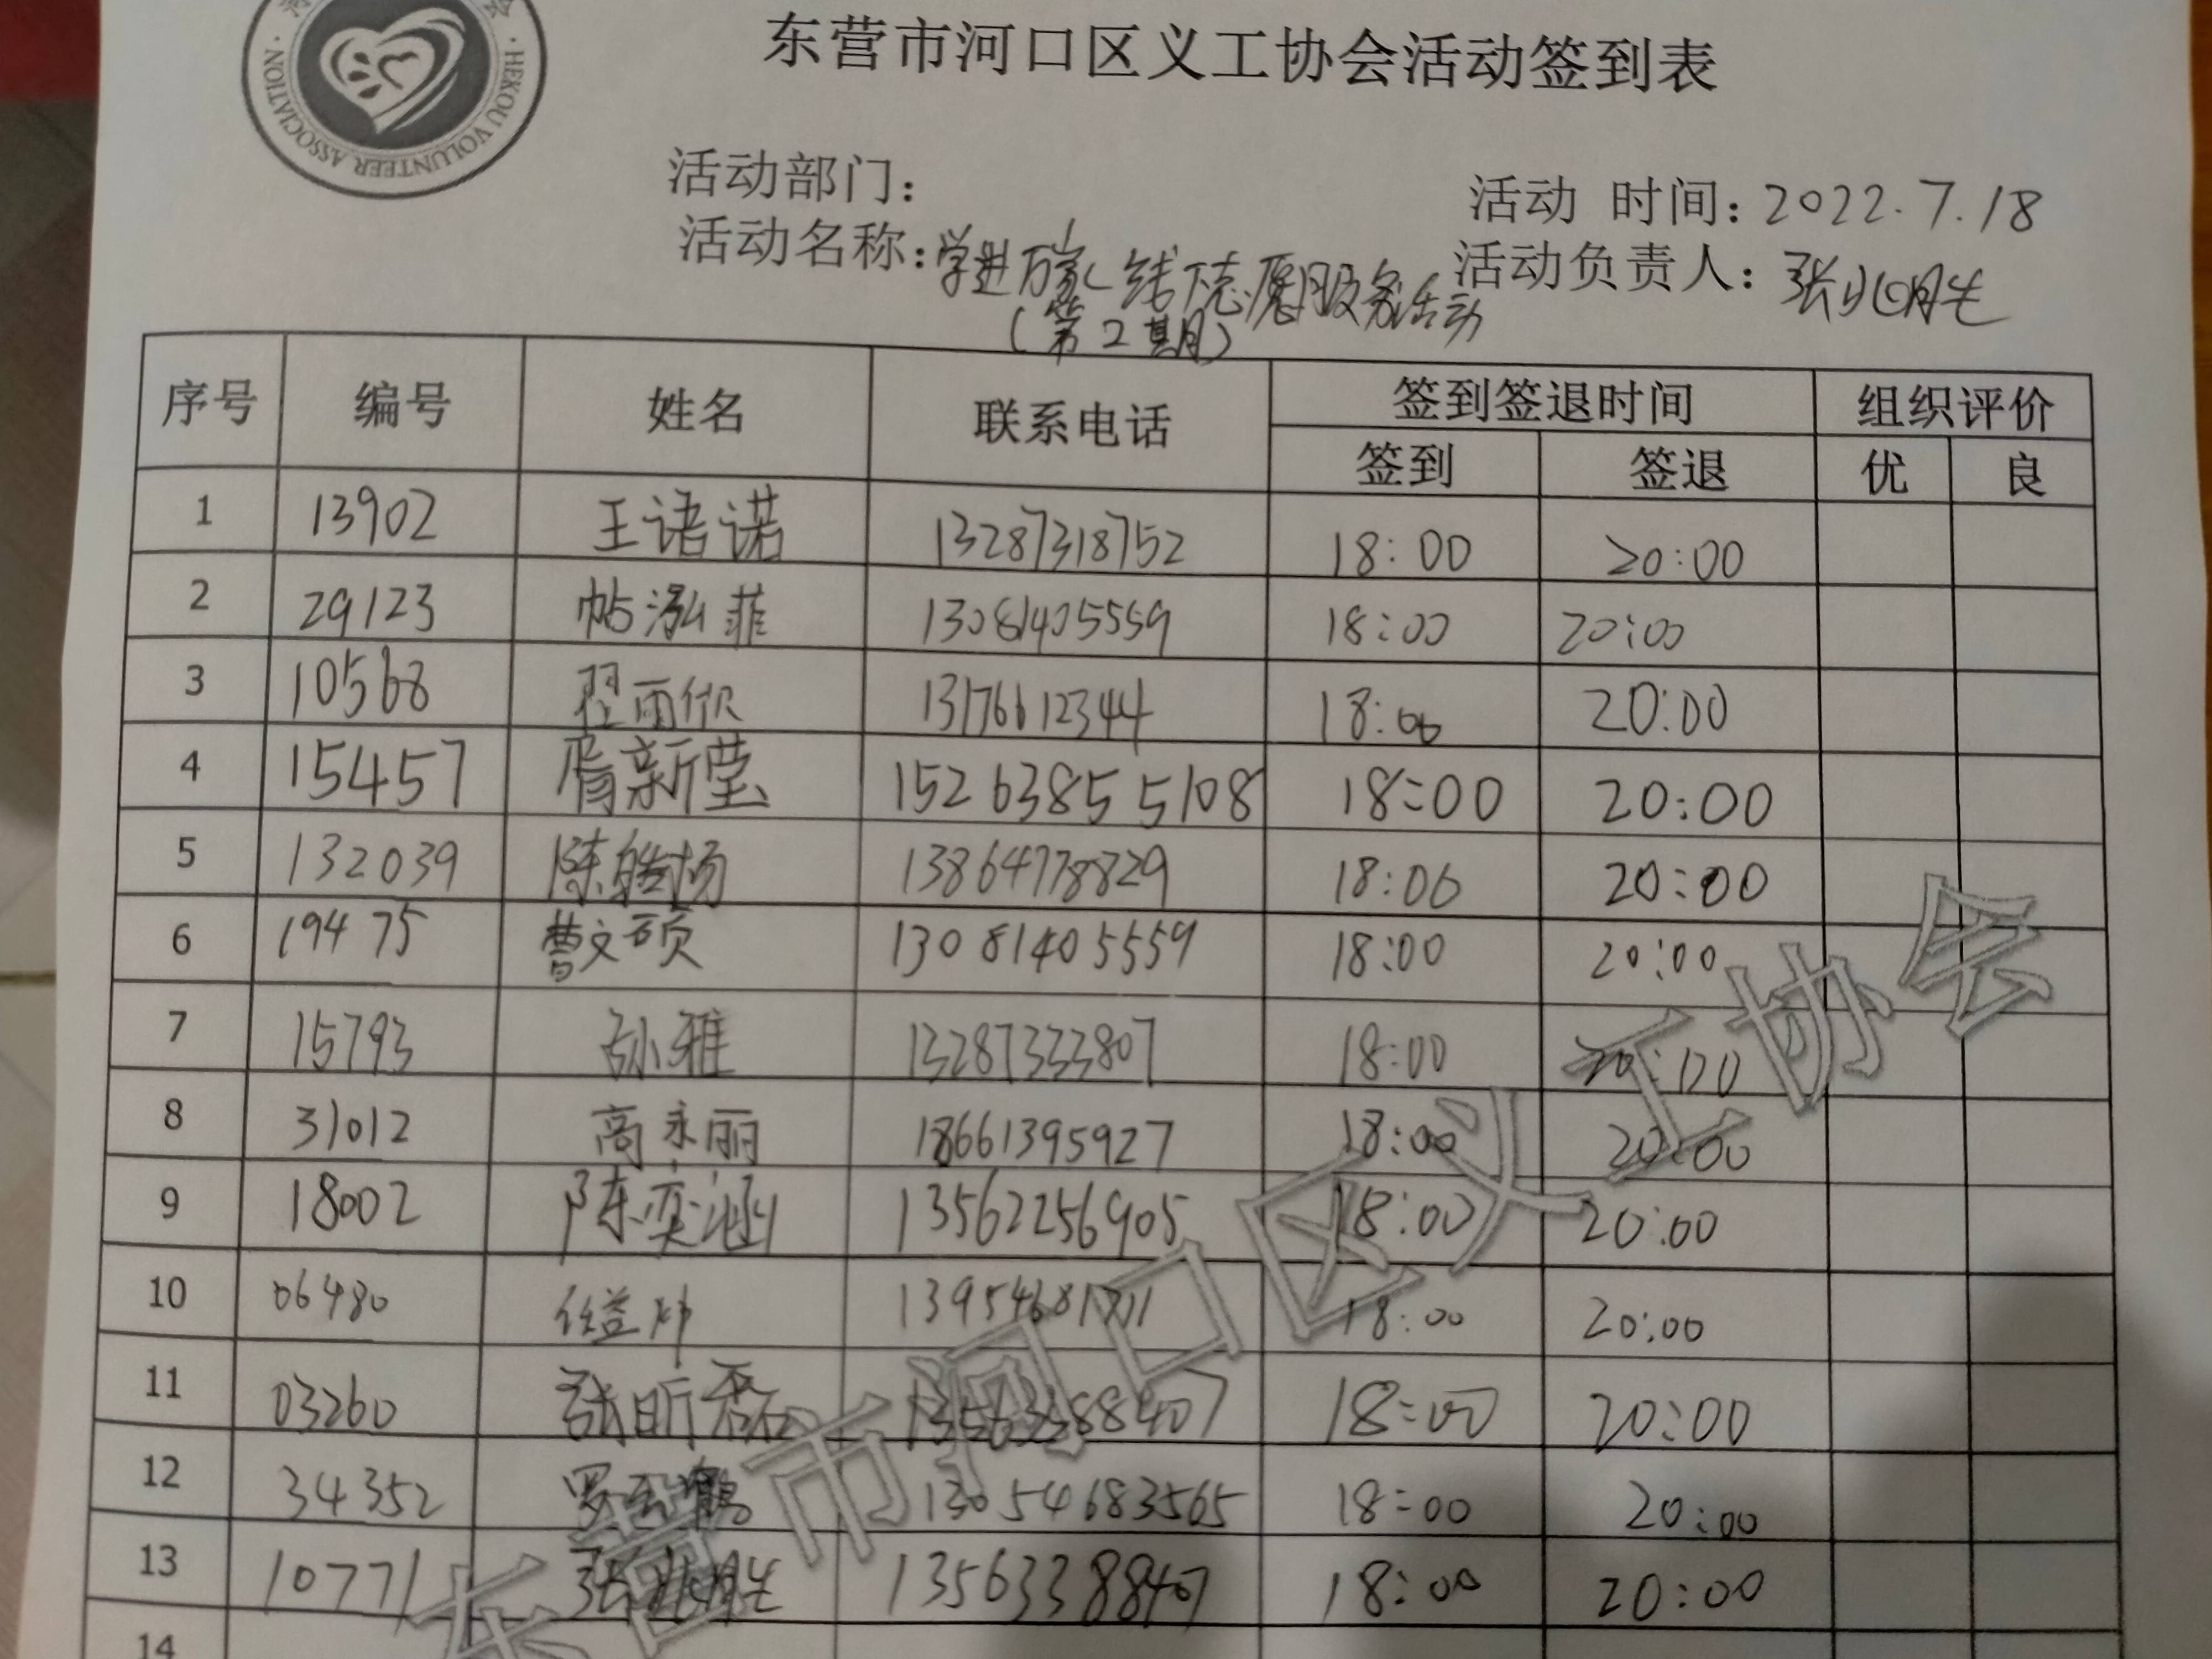 HEKOU VOLUNTEER ASSOCIATION
东营市河口区义工协会活动签到表
活动部门：
活动 时间：2022.7.18
活动名称：学进万家线下志愿服务活动
（第2期）
活动负责人：张兆胜
序号 编号 姓名 联系电话 签到签退时间 组织评价
签到 签退 优 良
1 13902 王语诺 13287318752 18:00 20:00
2 29123 帖泓菲 13081405559 18:00 20:00
3 10568 程雨欣 13176612344 18:00 20:00
4 15457 胥新莹 15263855108 18:00 20:00
5 132039 陈皓扬 13864778829 18:00 20:00
6 19475 曹文硕 13081405559 18:00 20:00
7 15793 孙雅 13287333807 18:00 20:00
8 31012 高永丽 18661395927 18:00 20:00
9 18002 陈奕涵 13562256905 18:00 20:00
10 06480 任益帅 18:00 20:00
11 03260 张昕磊 13563388407 18:00 20:00
12 34352 罗 鹤 13054683565 18:00 20:00
13 10771 张兆胜 13563388407 18:00 20:00
14
东营市河口区义工协会